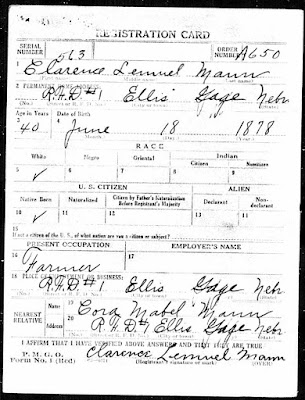 REGISTRATION CARD
SERIAL NUMBER 563 ORDER NUMBER A650
1 Clarence Lemuel Mann
2 PERMANENT HOME ADDRESS:
R.F.D #1 Ellis Gage Nebr
Age in Years Date of Birth
3 40 4 June 18 1878
RACE
White Negro Oriental Indian
Citizen Noncitizen
5 ✓ 6 7 8 9
U. S. CITIZEN ALIEN
Native Born Naturalized Citizen by Father's Naturalization Before Registrant's Majority Declarant Non-declarant
10 ✓ 11 12 13 14
15 If not a citizen of the U. S., of what nation are you a citizen or subject?
PRESENT OCCUPATION EMPLOYER'S NAME
16 Farmer 17
18 PLACE OF EMPLOYMENT OR BUSINESS:
R.F.D #1 Ellis Gage Nebr
NEAREST RELATIVE Name 19 Cora Mabel Mann
Address 20 R.F.D #1 Ellis Gage Nebr
I AFFIRM THAT I HAVE VERIFIED ABOVE ANSWERS AND THAT THEY ARE TRUE
P. M. G. O.
Form No. 1 (Red) Clarence Lemuel Mann
(Registrant's signature or mark) (OVER)